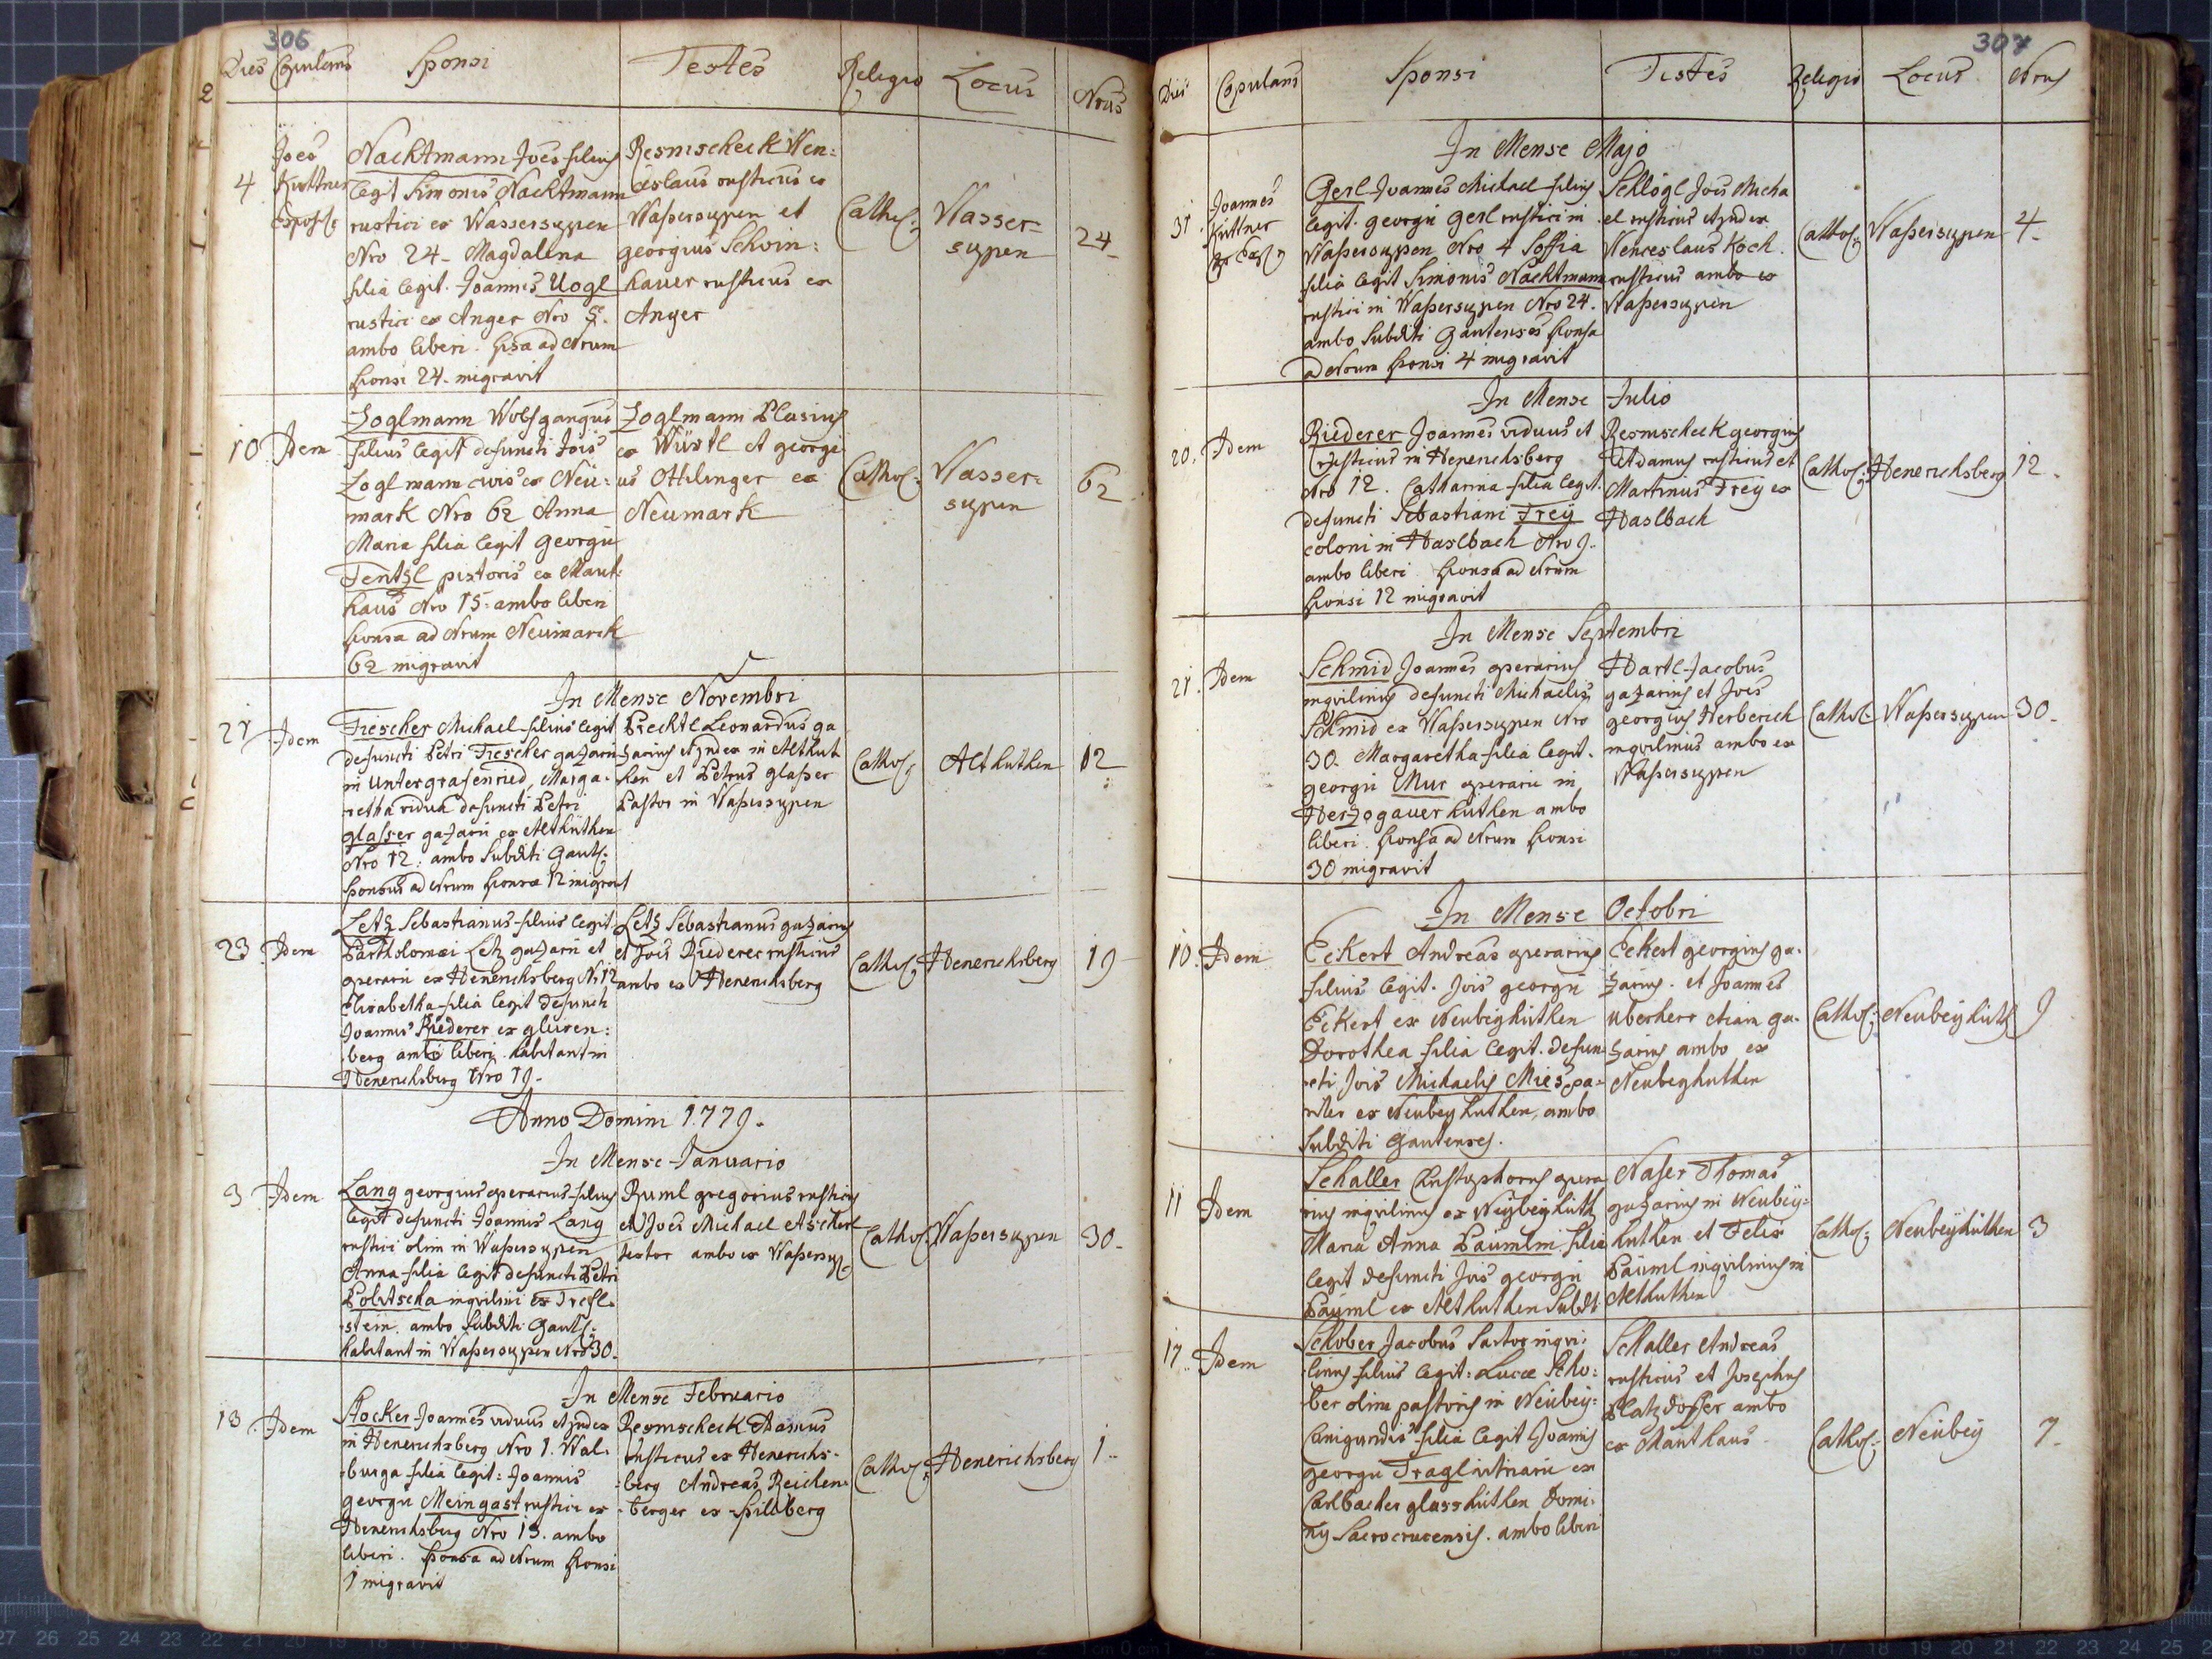 306
Dies Copulans Sponsi Testes Religio Locus Nrus
4 Joes Kuttner Expos:
Nacktmann Joes filius
legit Simonis Nacktmann
rustici ex Wassersuppen
Nro 24 - Magdalena
filia legit. Joannis Vogl
rustici ex Anger Nro 5.
ambo liberi. spsa ad Nrum
sponsi 24. migravit
Resmscheck Wen:
ceslaus rusticus ex
Wassersuppen et
georgius Schwin:
hauer rusticus ex
Anger
Cathol:
Wasser=
suppen
24
10. Idem
Zoglmann Wolfgangus
filius legit defuncti Jois
Zoglmann civis ex Neü:
mark Nro 62 Anna
Maria filia legit Georgii
Tentzl pistoris ex Maut:
haus Nro 15. ambo liberi
sponsa ad Nrum Neümarck
62 migravit
Zoglmann Blasius
ex Würstl et georgi
us Ottlinger ex
Neumark
Cathol:
Wasser=
suppen
62
In Mense Novembri
21 Idem
Frescher Michael filius legit
defuncti Petri Frescher gazarii
in Untergrafenried, Marga-
retha vidua defuncti Petri
glasser gazarii ex Althütten
Nro 12: ambo subditi Gaut:
sponsus ad Nrum sponsæ 12 migravit
Brechtl Leonardus ga
zarius et judex in Althut
ten et Petrus glasser
Pastor in Wassersuppen
Cathol:
Althutten
12
23 Idem
Letz Sebastianus filius legit
Bartholomæi Letz gazarii et
operarii ex Henerichsberg N: 12
Elisabetha filia legit defuncti
Joannis Riederer ex glüsen:
berg ambo liberi. habitant in
Henerichsberg Nro 19.
Letz Sebastianus gazarius
et Jois Riederer rusticus
ambo ex Henerichsberg
Cathol:
Henerichsberg
19
Anno Domini 1779.
In Mense Januario
3 Idem
Lang georgius operarius filius
legit defuncti Joannis Lang
rustici olim in Wassersuppen
Anna filia legit defuncti Petri
Politscha inqvilini ex Trefl=
stein. ambo subditi Gaut:
habitant in Wassersuppen Nro 30.
Ruml gregorius rusticus
et Joes Michael Ascherl
textor ambo ex Wassersup:
Cathol:
Wassersuppen
30.
In Mense Februario
13 Idem
Stocker Joannes viduus et judex
in Henerichsberg Nro 1. Wal:
burga filia legit: Joannis
georgii Meingast rustici ex
Henerichsberg Nro 13. ambo
liberi. sponsa ad Nrum sponsi
1 migravit
Resmscheck Adamus
rusticus ex Henerichs-
berg Andreas Reichen=
berger ex Spillberg
Cathol:
Henerichsberg
1
307
Dies Copulans Sponsi Testes Religio Locus Nrus
In Mense Majo
31 Joannes
Kuttner
Gerl Joannes Michael filius
legit. georgii gerl rustici in
Wassersuppen Nro 4 Soffia
filia legit Simonis Nacktmann
rustici in Wassersuppen Nro 24.
ambo subditi Gautenses sponsa
ad Nrum sponsi 4 migravit
Schlögl Jois Micha
el rusticus et judex
Wenceslaus Koch.
rusticus ambo ex
Wassersuppen
Cathol:
Wassersuppen
4
In Mense Julio
20. Idem
Riederer Joannes viduus et
rusticus in Henerichsberg
Nro 12. Catharina filia legit.
defuncti Sebastiani Freÿ
coloni in Haslbach Nro 9.
ambo liberi. sponsa ad Nrum
sponsi 12 migravit
Resmscheck georgius
Adamus rusticus et
Martinus Freÿ ex
Haslbach
Cathol:
Henerichsberg
12
In Mense Septembri
21. Idem
Schmid Joannes operarius
inqvilinus defuncti Michaelis
Schmid ex Wassersuppen Nro
30. Margaretha filia legit.
georgii Mur operarii in
Herzogauer hutten ambo
liberi. sponsa ad Nrum sponsi
30 migravit
Hartl Jacobus
gazarius et Jois
georgius Herberich
inqvilinus ambo ex
Wassersuppen
Cathol:
Wassersuppen
30
In Mense Octobri
10. Idem
Eckert Andreas operarius
filius legit. Jois georgii
Eckert ex Neubeyhutten
Dorothea filia legit. defun
cti Jois Michaelis Mies pa-
riter ex Neubeyhutten, ambo
subditi Gautenses.
Eckert georgius ga-
zarius. et Joannes
Uberherr etiam ga-
zarius ambo ex
Neubeyhutten
Cathol:
Neubeyhütt
9
11 Idem
Schaller Christophorus opera
rius inqvilinus ex Neubeyhutt
Maria Anna Baümlin filia
legit defuncti Jois georgii
Baüml ex Althutten subdt
Naser Thomas
gazarius in Neubeÿ=
hutten et Felix
Baüml inqvilinus in
Althutten
Cathol:
Neubeÿhütten
3
17 Idem
Schober Jacobus Sartor inqvi:
linus filius legit: Lucæ Scho:
ber olim pastoris in Neubeÿ:
Cunigundis filia legit Joannis
georgii Fragl vitriarii ex
Carlbacher glasshütten Domi:
nij Sacrocrucensis. ambo liberi
Schaller Andreas
rusticus et Josephus
Platzdoffer ambo
ex Mauthaus
Cathol:
Neübeÿ
7